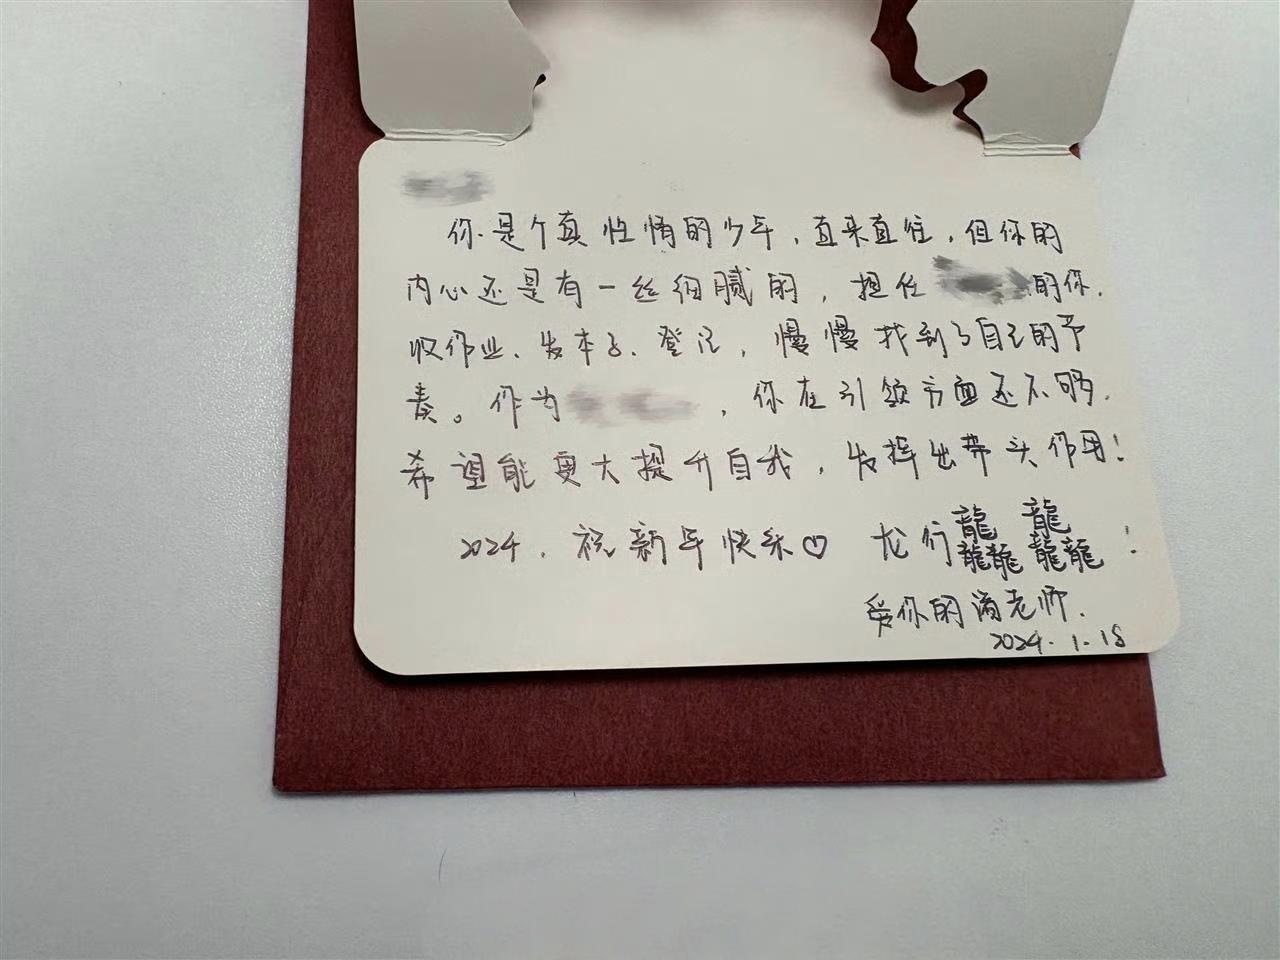 你是个真性情的少年，直来直往，但你的
内心还是有一丝细腻的，担任 的你，
收作业、发本子、登记，慢慢找到了自己的节
奏。作为 ，你在引领方面还不够，
希望能更大提升自我，发挥出带头作用！
2024，祝新年快乐♡ 龙行龘龘！
爱你的 老师.
2024.1.18